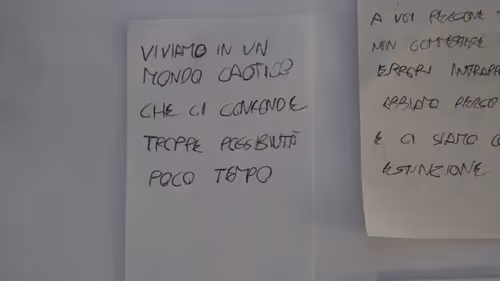 VIVIAMO IN UN
MONDO CAOTICO
CHE CI CONCEDE
TROPPE POSSIBILITÀ
POCO TEMPO
A VOI PERSONE
NON COMMETTERE
ERRORI
ABBIAMO PERSO
E CI SIAMO
ESTINZIONE